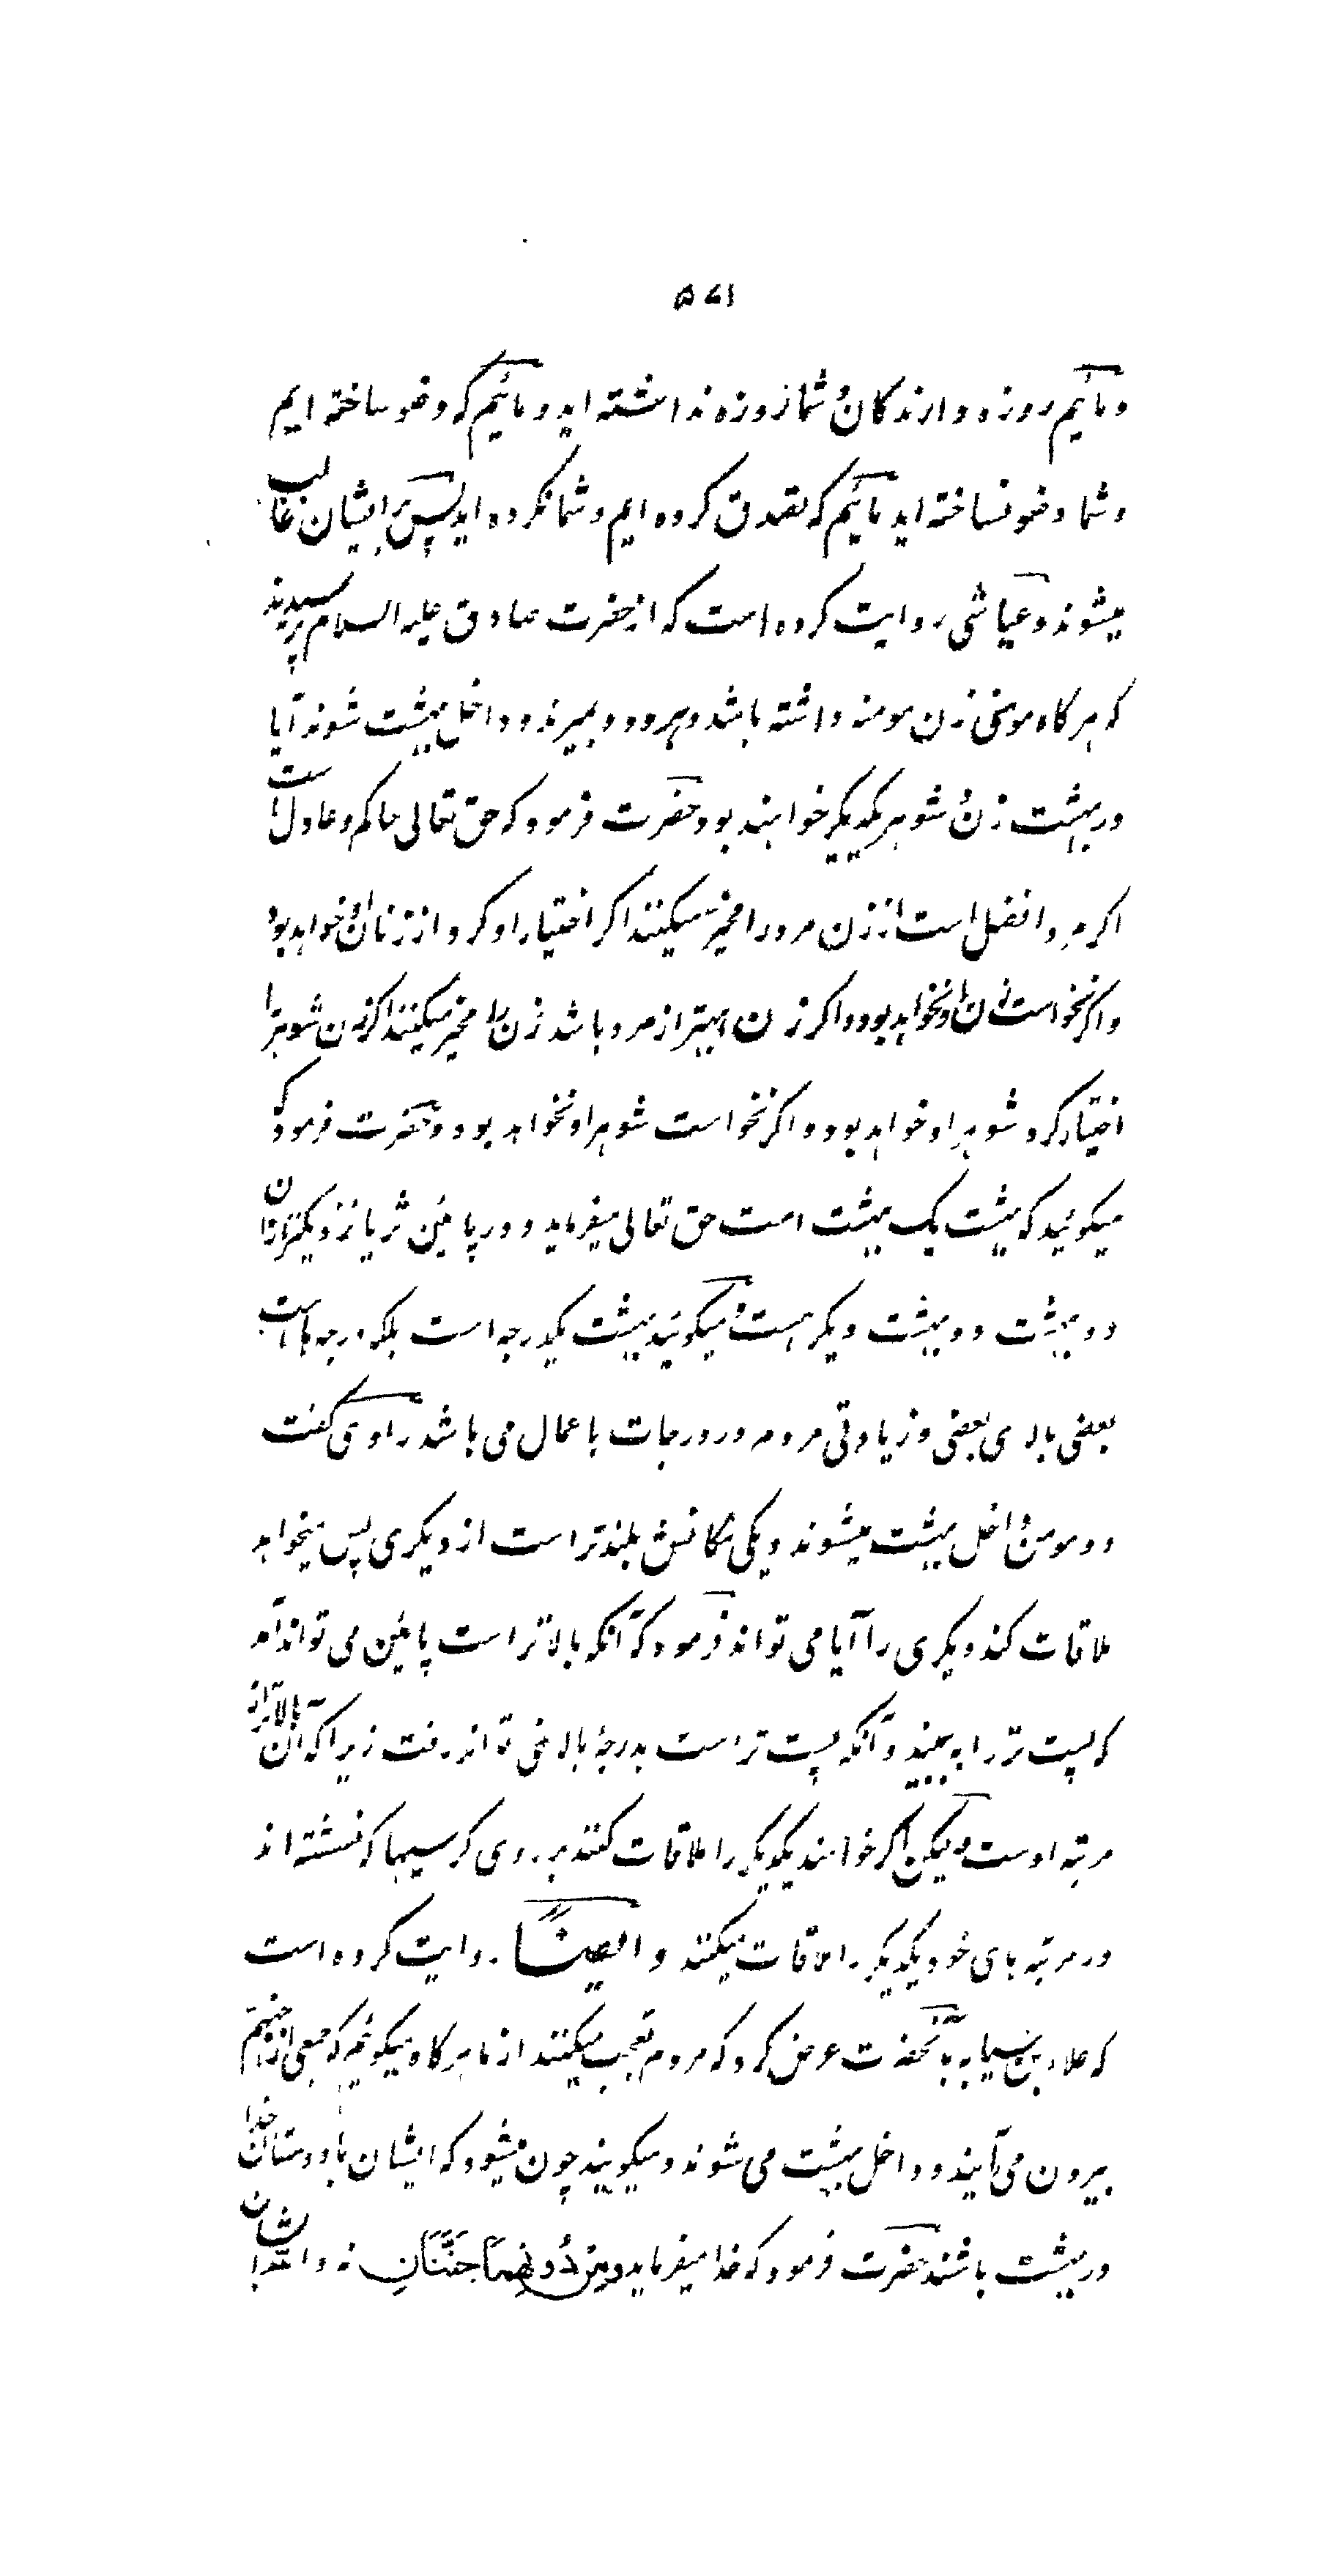 ۵۷۱
و مائیم روزه دارندکان و شما روزه نداشته اید و مائیم که وضو ساخته ایم
و شما وضو نساخته اید مائیم که تصدق کرده ایم و شما نکرده اید پس بر ایشان غالب
میشوند و عیاشی روایت کرده است که از حضرت صادق علیه السلام پرسیدند
که هرکاه مومنی زن مومنه داشته باشد و هر دو بمیرند و داخل بهشت شوند آیا
در بهشت زن و شوهر یکدیکر خواهند بود حضرت فرمود که حق تعالی حاکم و عادل است
اکر مرد افضل است از زن مرد را مخیر میکنند اکر اختیار او کرد از زنان او خواهد بود
و اکر نخواست زن او نخواهد بود و اکر زن بهتر از مرد باشد زن را مخیر میکنند اکر زن شوهر را
اختیار کرد شوهر او خواهد بود و اکر نخواست شوهر او نخواهد بود و حضرت فرمود که
میکوئید که بهشت یک بهشت است حق تعالی میفرماید و در پائین تر یا نزدیکتر از آن
دو بهشت دو بهشت دیکر هست و میکوئید بهشت یکدرجه است بلکه درجه ها است
بعضی بالای بعضی و زیادتی مردم در درجات باعمال می باشد راوی کفت
دو مومن داخل بهشت میشوند و یکی مکانش بلندتر است از دیکری پس میخواهد
ملاقات کند دیکری را آیا می تواند فرمود که آنکه بالاتر است پائین می تواند آمد
که پست تر را به بیند و آنکه پست تر است بدرجهٔ بالا نمی تواند رفت زیرا که آن بالاتر از
مرتبه اوست و لیکن اکر خواهند یکدیکر را ملاقات کنند بر روی کرسیها که نشسته اند
در مرتبه های خود یکدیکر را ملاقات میکنند و ایضاً روایت کرده است
که علاء بن سیابه بآنحضرت عرض کرد که مردم تعجب میکنند از ما هرکاه میکوئیم که جمعی از جهنم
بیرون می آیند و داخل بهشت می شوند و میکویند چون میشود که ایشان با دوستان خدا
در بهشت باشند حضرت فرمود که خدا میفرماید وَمِنْ دُونِهِمَا جَنَّتَانِ نه والله با ایشان